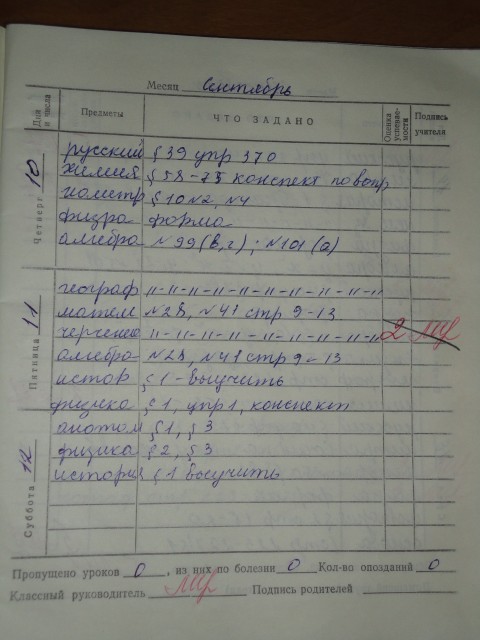 Месяц Сентябрь
Дни и числа Предметы ЧТО ЗАДАНО Оценка успевае-мости Подпись учителя
Четверг 10
русский § 39 упр 370
химия § 58-73 конспект по вопр
геометр § 10 №2, №4
физра форма
алгебра №99(в,г); №101(а)
Пятница 11
географ 11-11-11-11-11-11-11-11
матем №28, №41 стр 9-13
черчение 11-11-11-11-11-11-11-11 2
алгебра №28, №41 стр 9-13
истор § 1 - выучить
физика § 1, упр 1, конспект
Суббота 12
анотом § 1, § 3
физика § 2, § 3
история § 1 выучить
Пропущено уроков 0, из них по болезни 0 Кол-во опозданий 0
Классный руководитель Подпись родителей